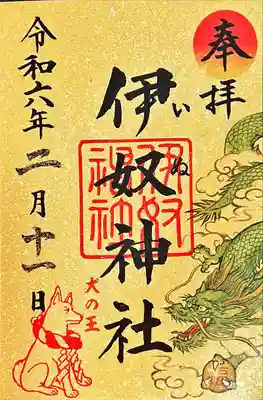 奉拝
伊奴神社
いぬ
伊奴
神社
犬の王
令和六年二月十一日